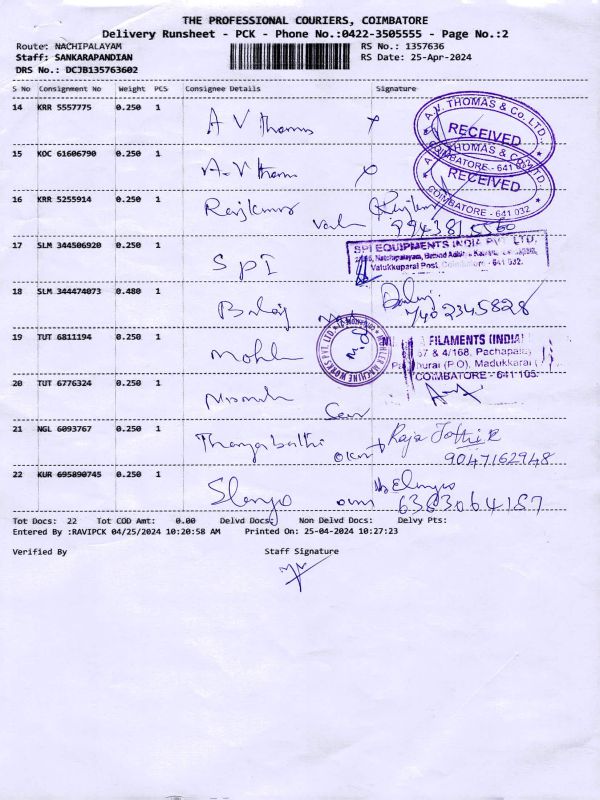 THE PROFESSIONAL COURIERS, COIMBATORE
Delivery Runsheet - PCK - Phone No.:0422-3505555 - Page No.:2
Route: NACHIPALAYAM
RS No.: 1357636
Staff: SANKARAPANDIAN
RS Date: 25-Apr-2024
DRS No.: DCJB135763602
S No Consignment No Weight PCS Consignee Details Signature
14 KRR 5557775 0.250 1 A V Thomas
A.V. THOMAS & Co. LTD.,
RECEIVED
COIMBATORE - 641 032
15 KOC 61606790 0.250 1 A.V Thomas
A.V. THOMAS & Co. LTD.,
RECEIVED
COIMBATORE - 641 032
16 KRR 5255914 0.250 1 Rajkumar
17 SLM 344506920 0.250 1 SPI
SPI EQUIPMENTS INDIA PVT. LTD.
Valukkuparai Post, Coimbatore - 641 032.
18 SLM 344474073 0.480 1 Balaj
19 TUT 6811194 0.250 1 Mohler
MOHLER MACHINE WORKS PVT. LTD.
FILAMENTS (INDIA)
& 4/168, Pachapa
(P.O), Madukkarai
COIMBATORE - 641 105.
20 TUT 6776324 0.250 1
21 NGL 6093767 0.250 1
Raja Jothi R
9047162948
22 KUR 695890745 0.250 1
6383064187
Tot Docs: 22 Tot COD Amt: 0.00 Delvd Docs: Non Delvd Docs: Delvy Pts:
Entered By :RAVIPCK 04/25/2024 10:20:58 AM Printed On: 25-04-2024 10:27:23
Verified By Staff Signature